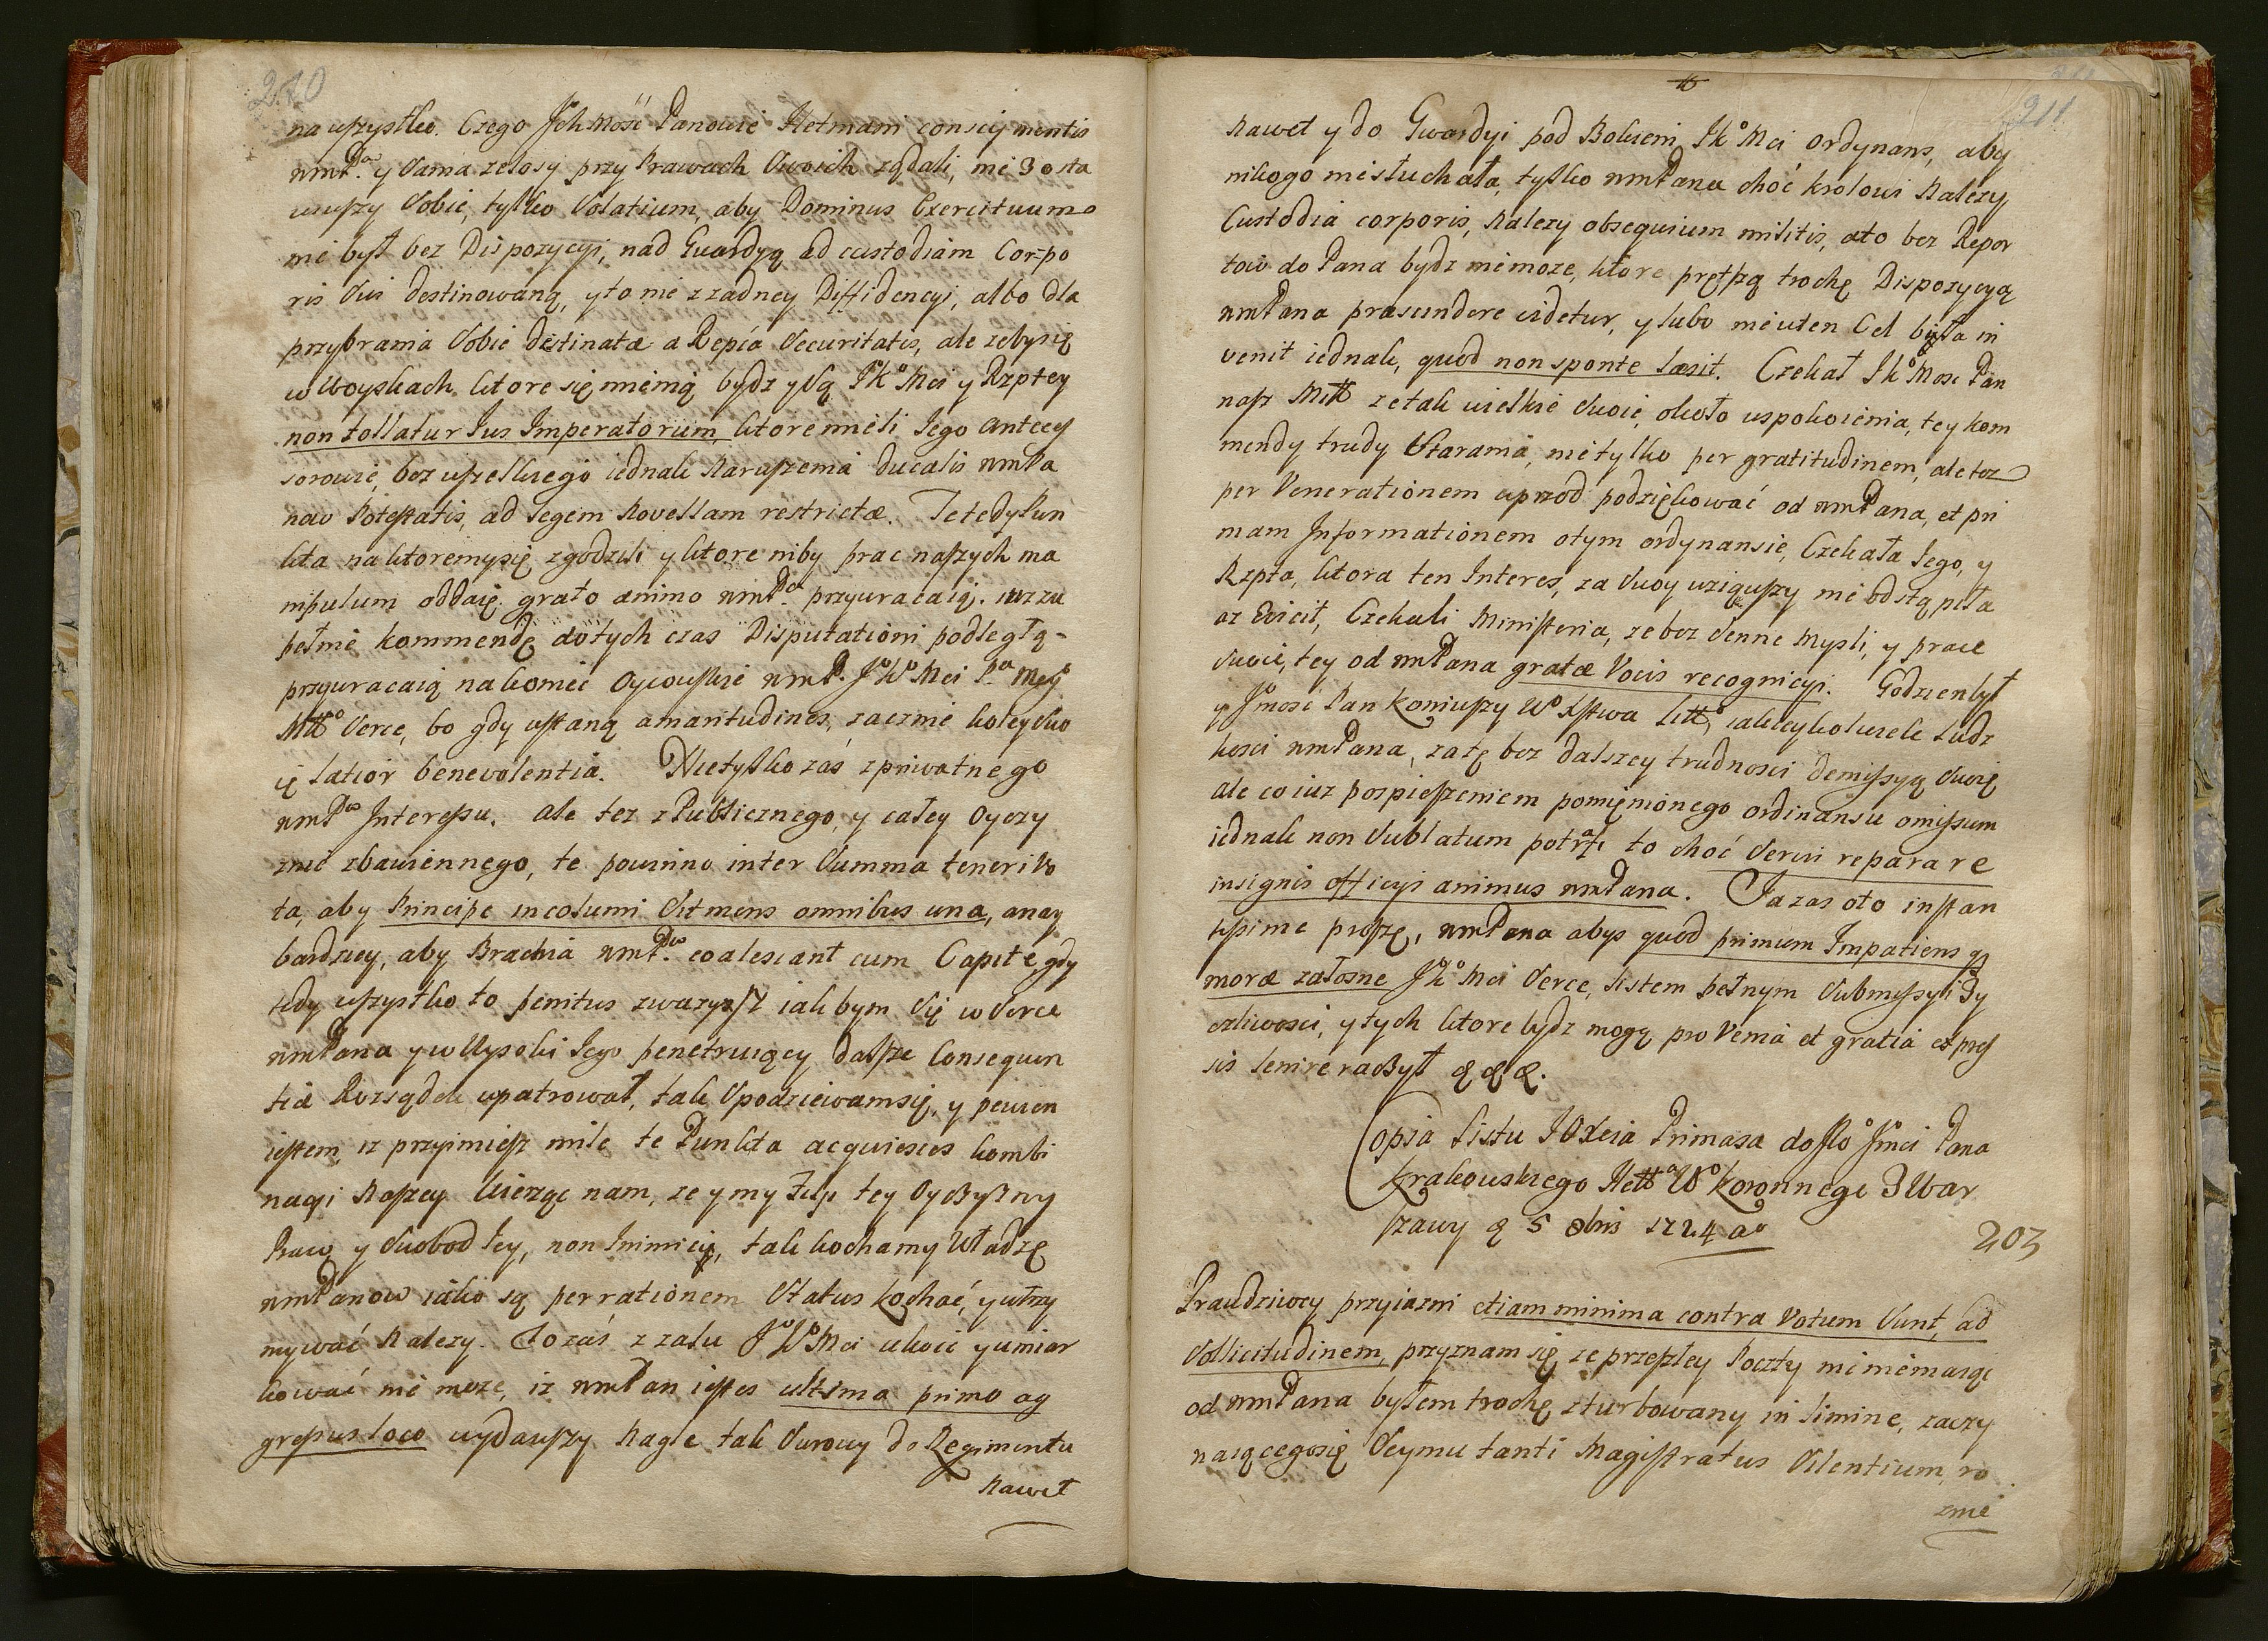 210
na wszystko. Czego Ich Mość Panowie Hetmani conscij mentis
wmPa. y sama zelosy przy Prawach swoich ządali, nie zosta
wuszy sobie, tylko solatium, aby Dominus Exercituum
nie był bez Dispozycyi, nad Gwardyą ad custodiam Corpo
ris sui destinowaną, y to nie z zadney Diffidencyi, albo dla
przybrania sobie destinatæ a Repca securitatis, ale zebysię
w woyskach ktore się mienią bydz y są JKo Mci y Rzptey
non tollatur Ius Imperatorium, ktore mieli Jego Antecys
sorowie, bez wszelkiego iednak naruszenia ducalis wmPa
now Potestatis, ad legem novellam restrictæ. Te tedy Pun
kta na ktoremysię zgodzili y ktore niby prac naszych ma
nipulum oddaię grato animo wmPa przywracaią. iuz zu
pełnie kommendę dotych czas Disputationi podległą
przywracaią nakoniec Oycowskie wmP. JoWo Mci Pa Mego
Mttо Serce, bo gdy ustaną amaritudines, zacznie koley swo
ię latior benevolentia. Nietylko zaś z priwatnego
wmPow Interessu. ale tez z Publicznego, y całey Oyczy
znie zbawiennego, te powinno inter summa teneri Vo
ta, aby Principe incolumi sit mens omnibus una, a nay
bardziey, aby Brachia wmPow. coalescant cum Capite, gdy
tedy wszystko to penitus zwazysz iakbym się w Serce
wmPana y w Wysoki Jego penetruiący dalsze Consequen
tia Rozsądek upatrował, tak spodziewamsię, y pewien
iestem, iz przyimiesz mile te Punkta acquiesces kombi
nacyi naszey wierząc nam, ze y my tusz tey Oyczyzny
Praw y swobod Jey, non Inimicij, tak kochamy Władzę
wmPanow iako są per rationem Status kochać, y utrzy
mywać nalezy. Co zaś z zalu JoWo Mci ukoić y umiar
kować nie moze, iz wmPan iestes ultima primo ag
gressus loco wydawszy nagle tak surowy do Regimentu
nawet
211
nawet y do Gwardyi pod Bokiem JKo Mci ordynans, aby
nikogo niesłuchała, tylko wmPana choć krolowi nalezy
Custodia corporis, nalezy obsequium militis, ato bez Repor
tow do Pana bydz niemoze, ktore prętszą trochę Dispozycyą
wmPana præscindere videtur, y lubo nie w ten Cel biła in
venit iednak, quod non sponte læsit. Czekał JKo Mosc Pan
nasz Mtt ze tak wielkie swoie, około uspokoienia, tey kom
mendy trudy starania, nietylko per gratitudinem, ale tez
per Venerationem wprzod podziękować od wmPana, et pri
mam Informationem otym ordynansie, Czekała tego, y
Rzpta, ktora ten Interes, za swoy wziąwszy nie odstąpiła
az Evicit, Czekali Ministeria, ze bez senne mysli, y prace
swoie, tey od wmPana gratæ Vocis recognicyi. Godzien był
y Jmosc Pan Koniuszy Wo Xstwa Littо, iakieykolwiek ludz
kosci wmPana, zatę bez dalszey trudnosci demissyą swoię
ale co iuz pospieszeniem pomienionego ordinansu omissum
iednak non sublatum potrafi to choć serius reparare
insignis officij animus wmPana. Ja zas oto instan
tissime proszę, wmPana abys quod primum Impatiens
moræ załosne JKo Mci Serce, listem pełnym submissyi zy
czliwosci, y tych ktore bydz mogą pro Venia et gratia expres
sis lenire raczył &&&.
Copia Listu JOXcia Primasa do Jo Jmci Pana
Krakowskiego Hetto Wo Koronnego z War
szawy d 5 8bris 1724 ao
203
Prawdziwey przyiazni etiam minima contra Votum sunt, ad
sollicitudinem, przyznam się ze przeszłey Poczty nic niemaiąc
od wmPana byłem trochę zturbowany in limine, zaczy
naiącegosię Seymu tanti Magistratus Silentium, ro
zmie